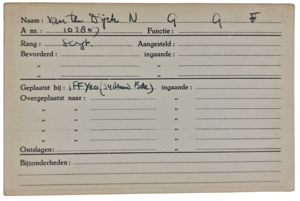 Naam: van den Dijck N G G F
A nr.: 10280 Functie:
Rang: Sergt. Aangesteld:
Bevorderd: ingaande:
" "
Geplaatst bij: ingaande:
Overgeplaatst naar: "
" " "
" " "
" " "
" " "
Ontslagen: "
Bijzonderheden: